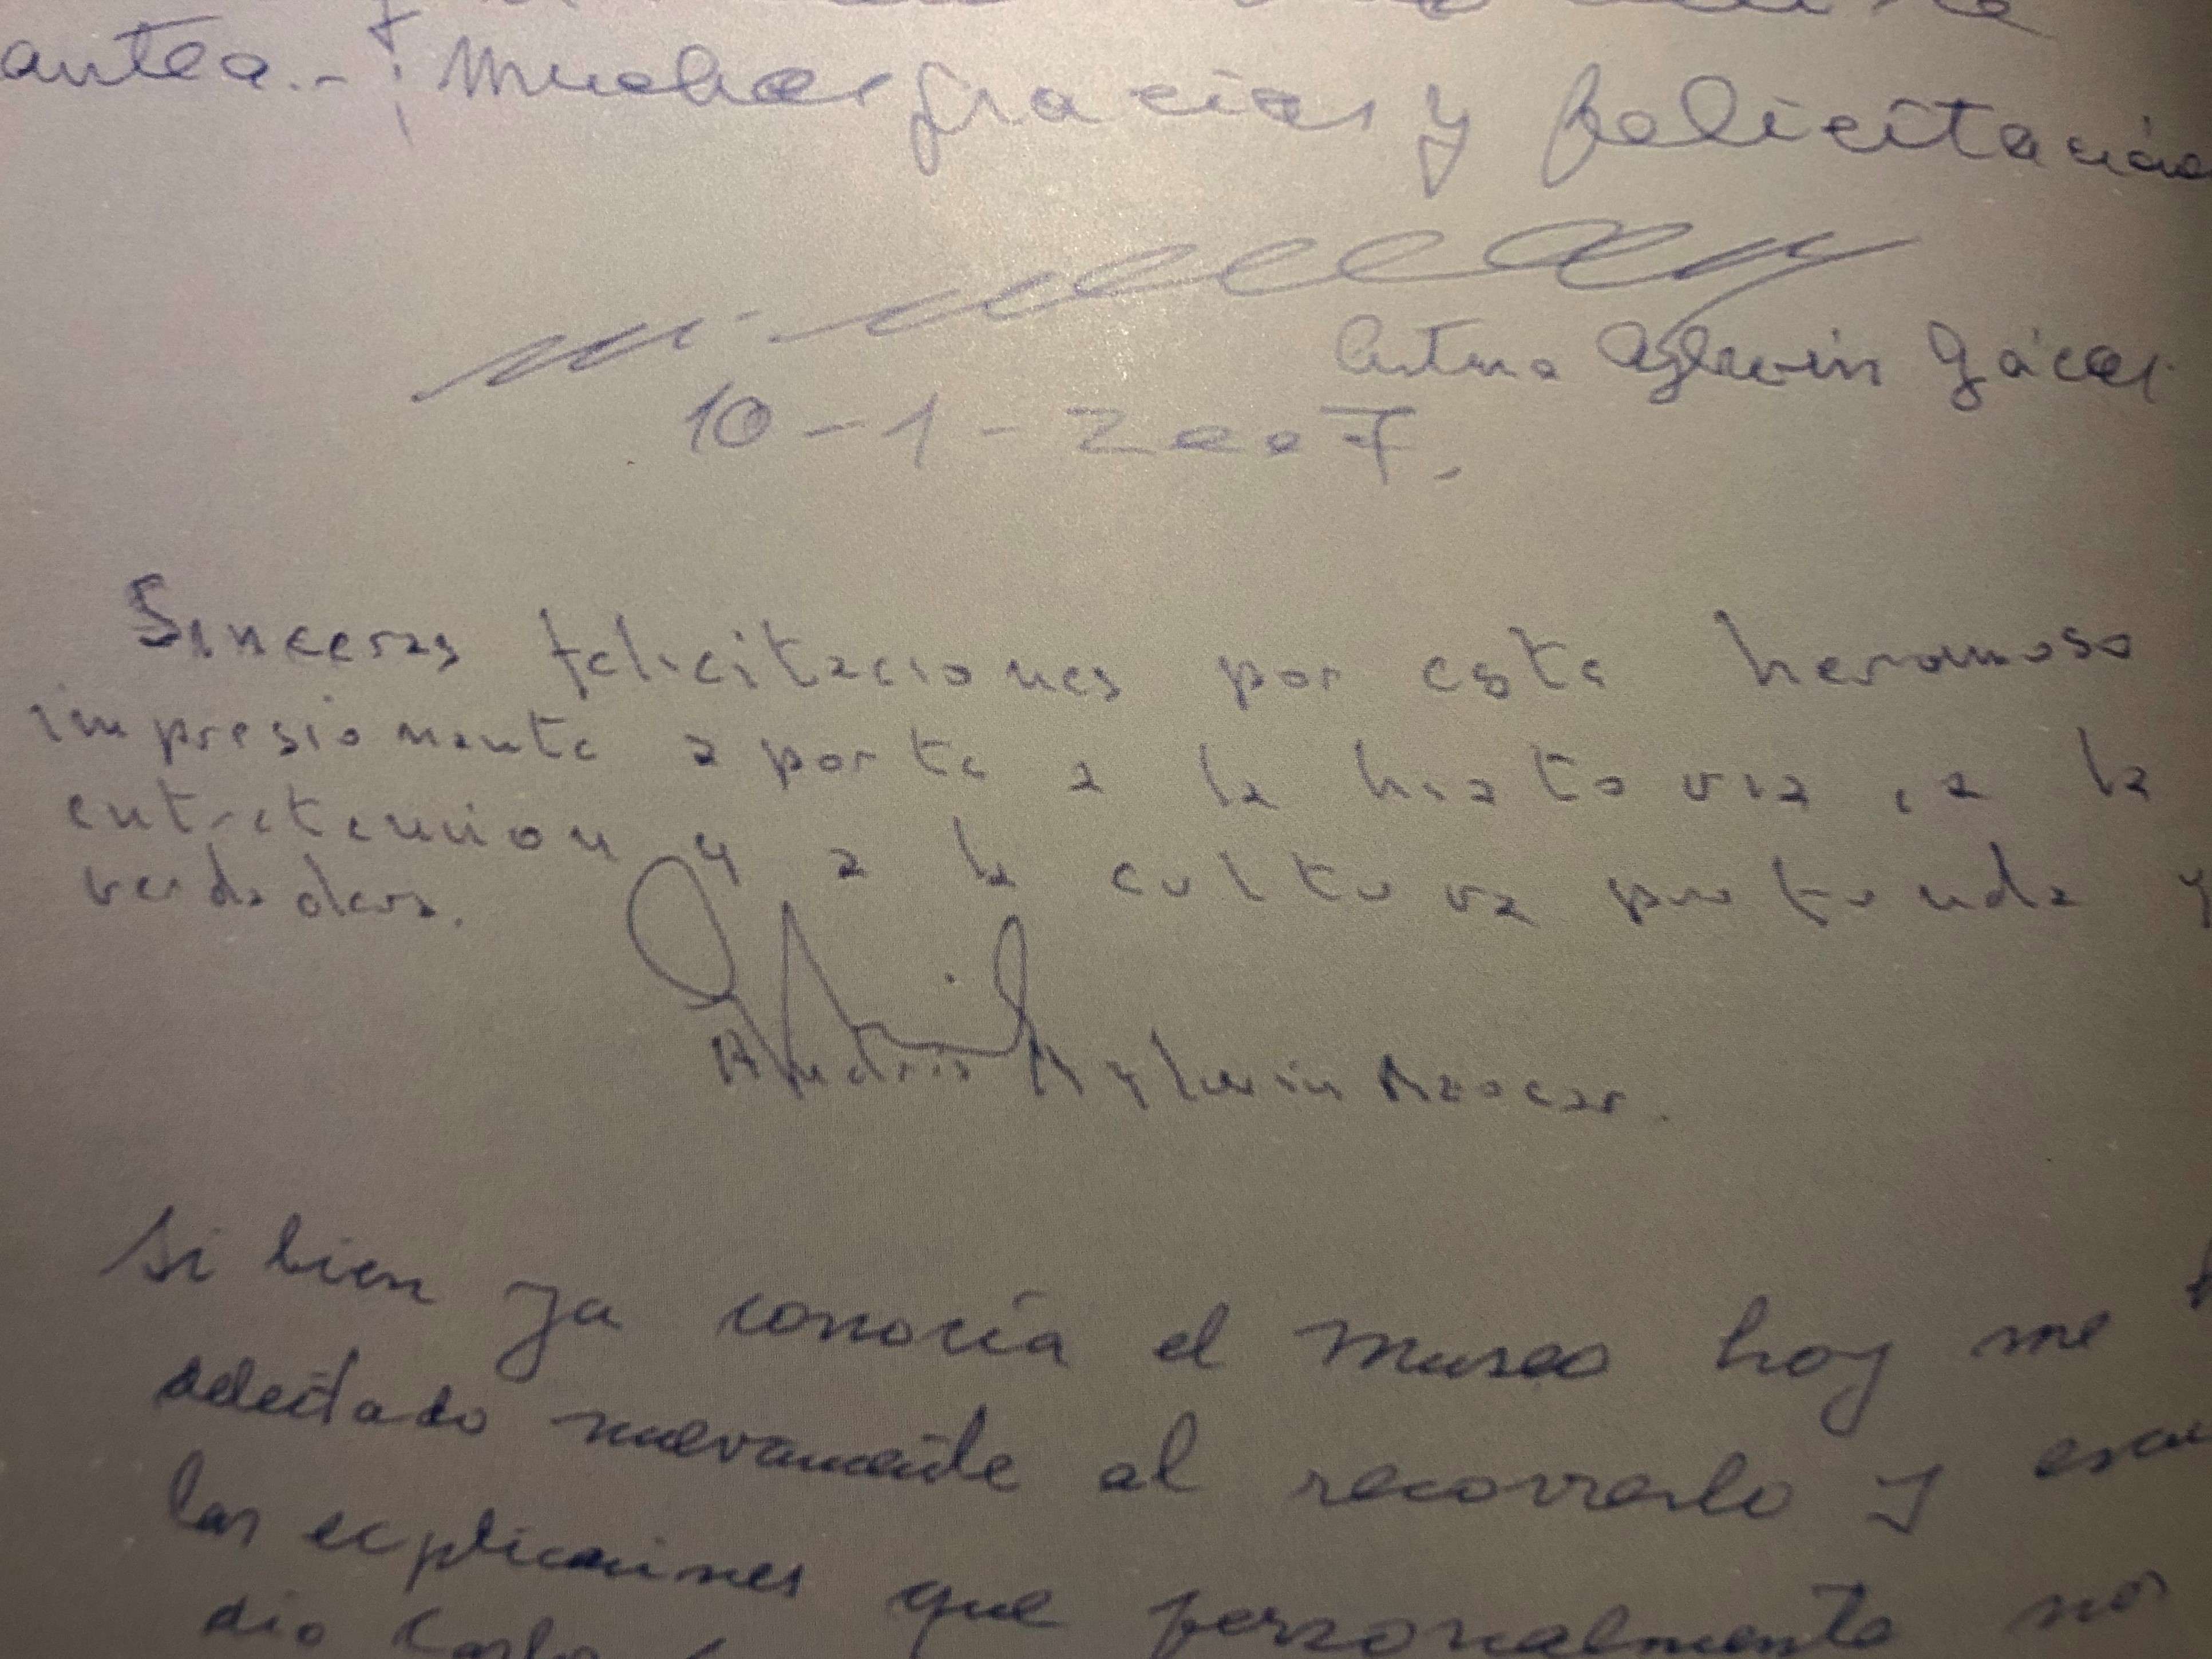 antea.- ¡Muchas gracias y felicitación
Arturo Aylwin Azócar
10-1-2007.
Sinceras felicitaciones por este hermoso
impresionante aporte a la historia, a la
entretención y a la cultura profunda y
verdadera.
Andrés Aylwin Azocar.
Si bien ya conocía el museo hoy me
deleitado nuevamente al recorrerlo y
las explicaciones que personalmente nos
dio Carlos